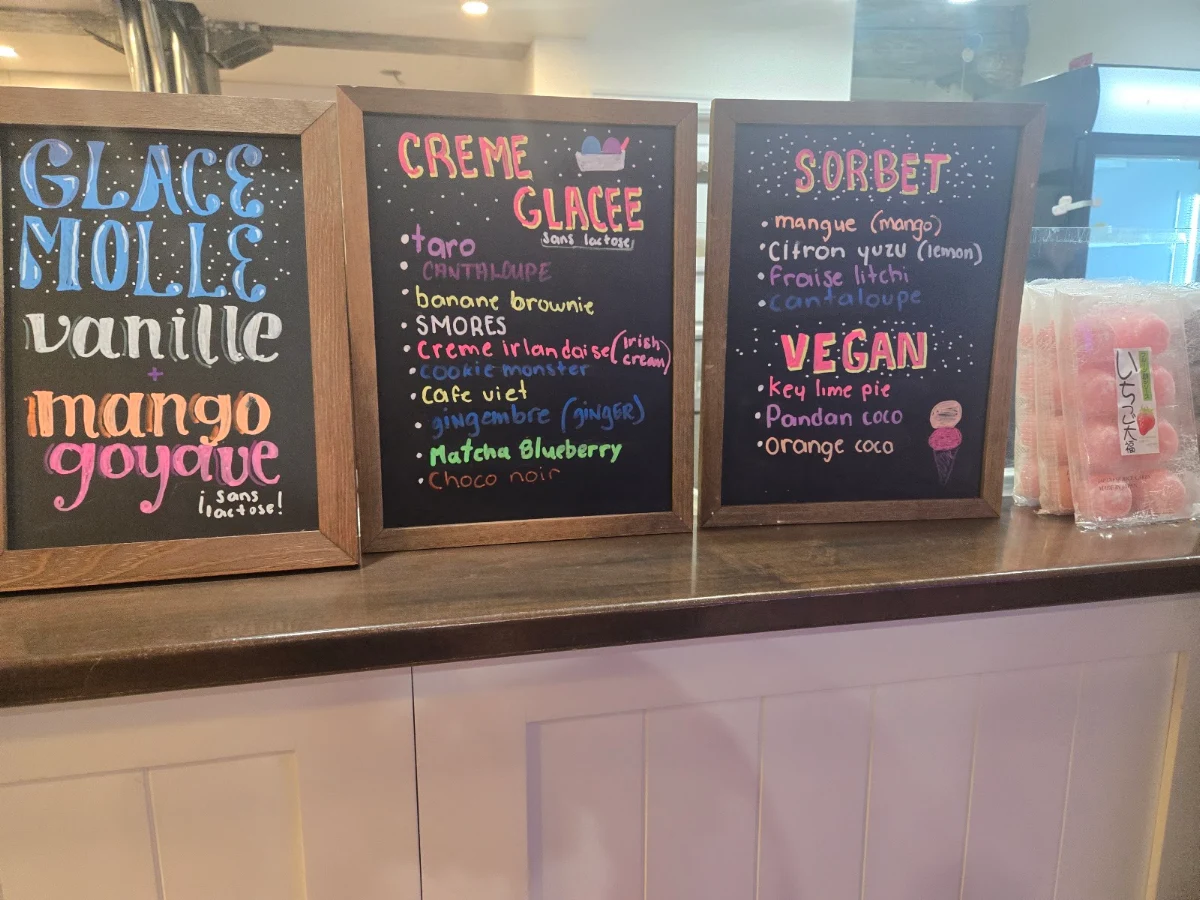 GLACE
MOLLE
vanille
+
mango
goyave
¡sans
lactose!
CREME
GLACEE
sans lactose
• taro
• CANTALOUPE
• banane brownie
• SMORES
• creme irlandaise (irish
cream)
• cookie monster
• Cafe viet
• gingembre (GINGER)
• Matcha Blueberry
• Choco noir
SORBET
• mangue (mango)
• Citron yuzu (lemon)
• fraise litchi
• cantaloupe
VEGAN
• Key lime pie
• Pandan coco
• Orange coco
いちご大福